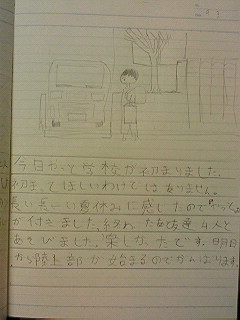 今日やっと学校が初まりました。
初まってほしいわけではありません。
長い長ーい夏休みに感じたので"やっと"
が付きました。終れ 達4人と
あそびました。楽しかったです。明日
から陸上部が始まるのでがんばります。